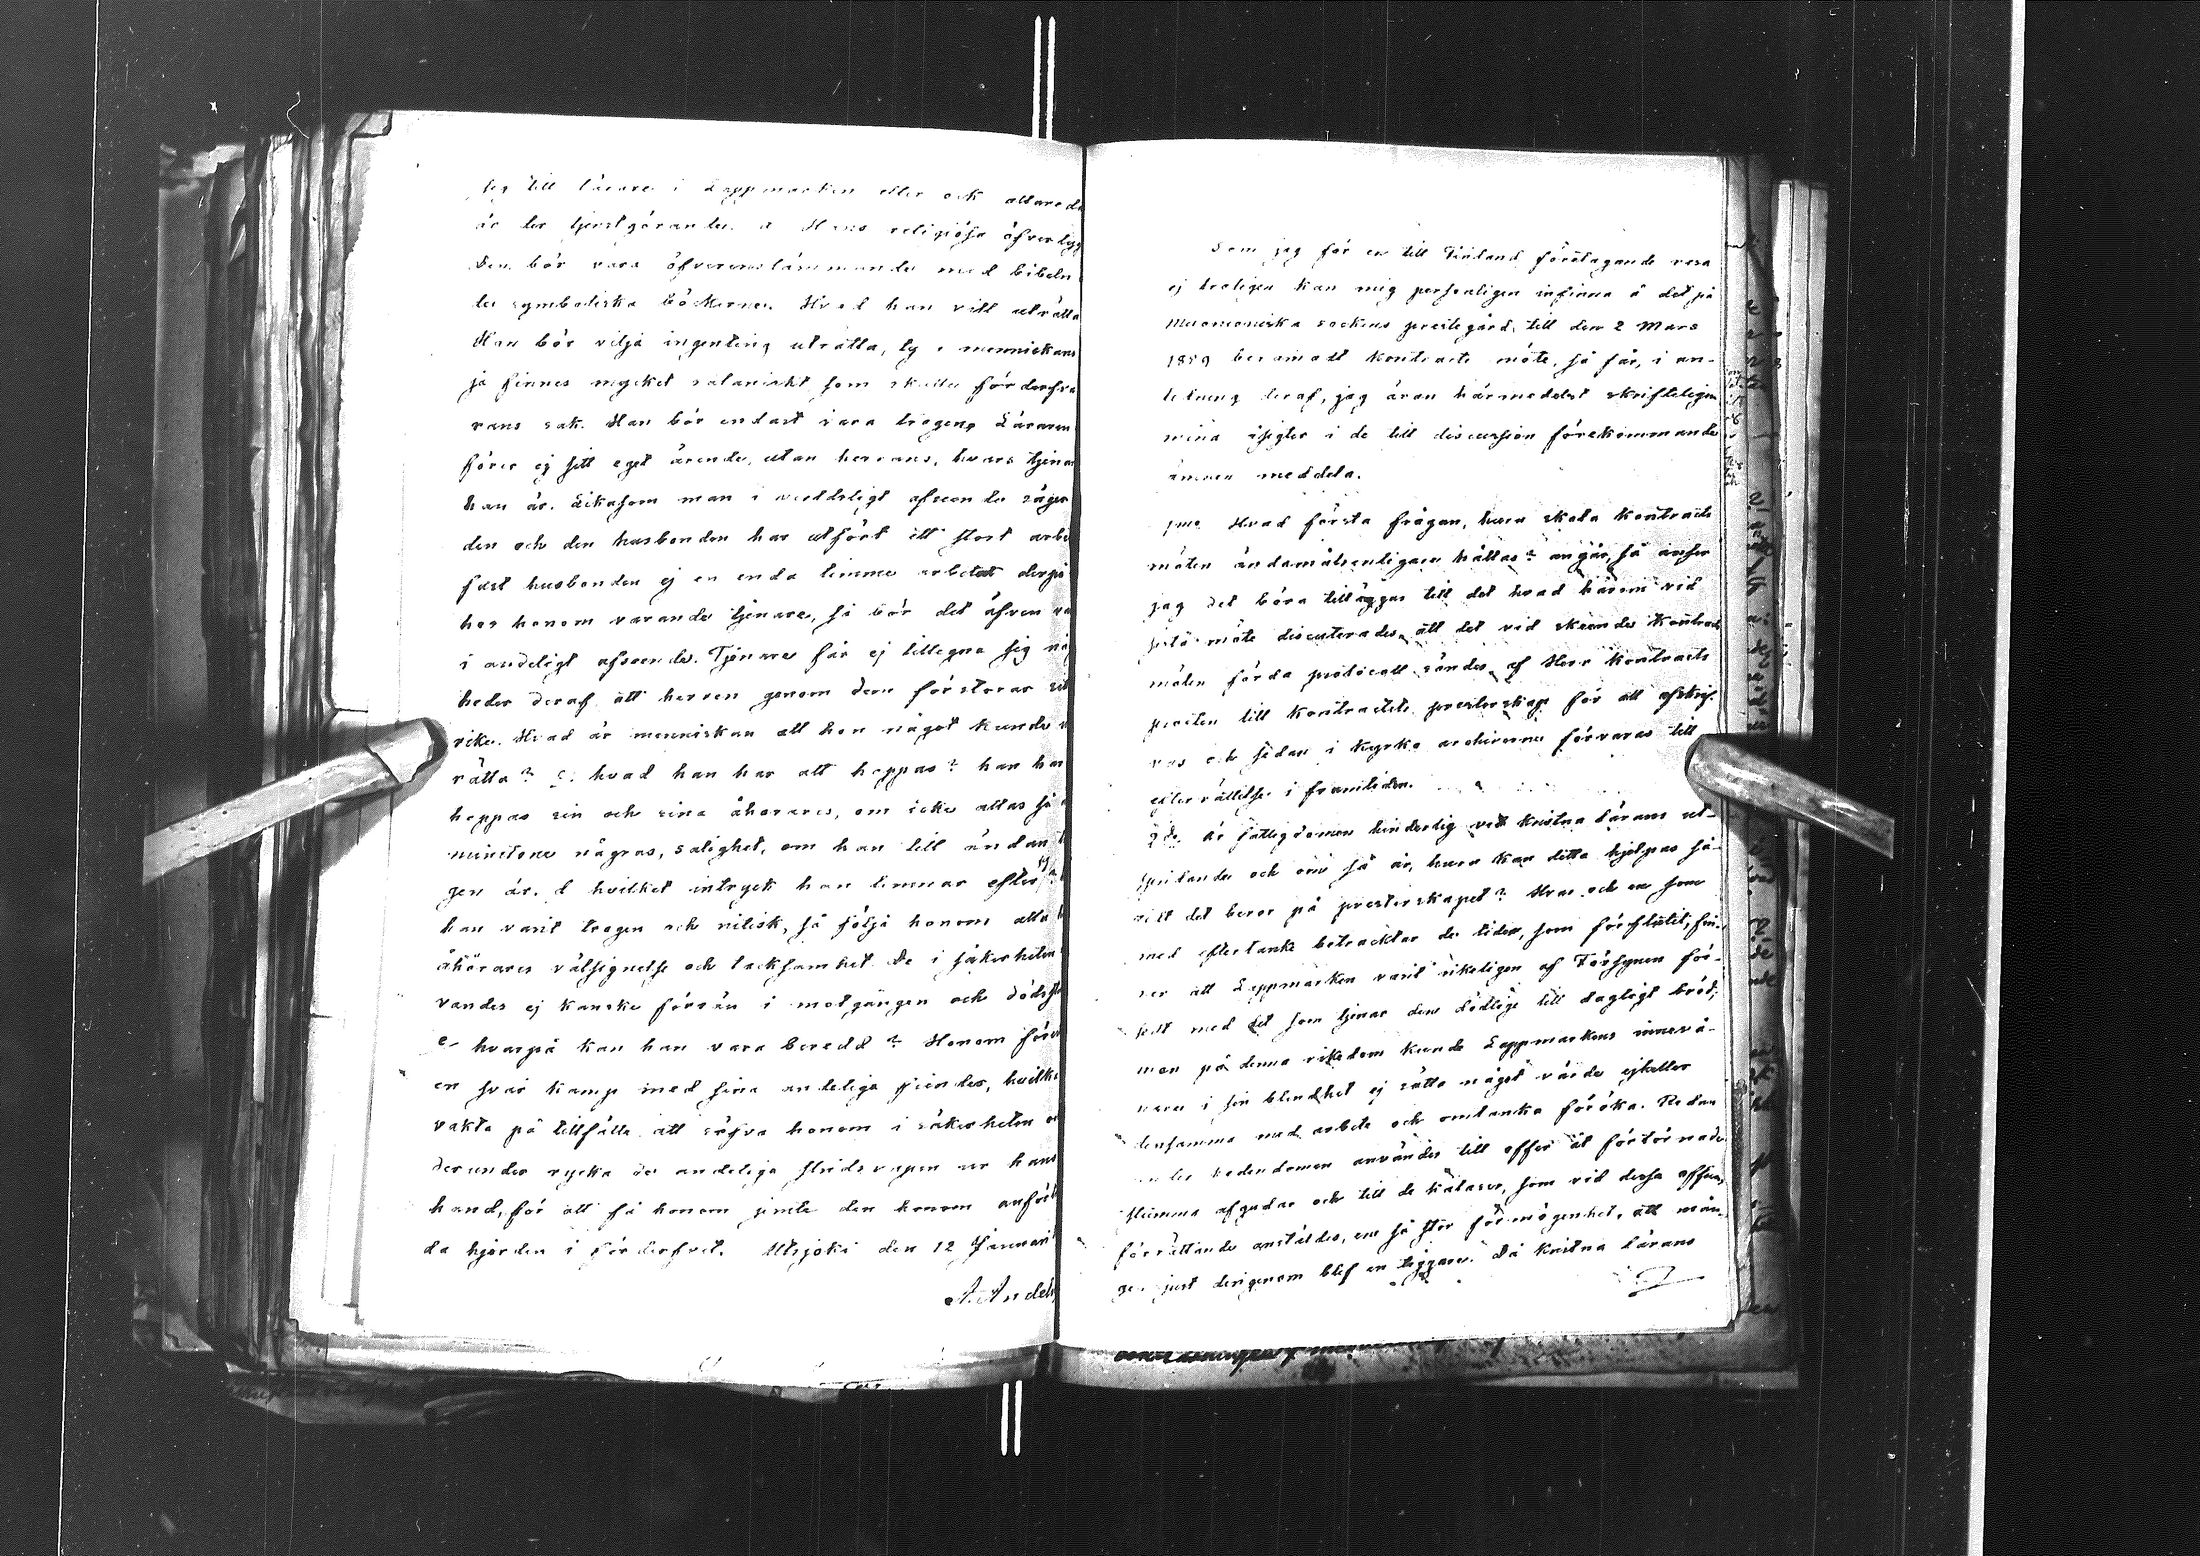 sig till lärare i Lappmarken eller ock allareda
är der tjenstgörande. a Hans religiösa öfvertyg
den bör vara öfverensstämmande med bibeln
de symboliska böckerne. Hvad han vill uträtta
Han bör vilja ingenting uträtta, ty i menniskans
ja finnes mycket sataniskt som skulle förderfva
rans sak. Han bör endast vara trogen, Läraren
förer ej sitt eget ärende, utan herrans, hvars tjena
han är. Likasom man i verldsligt afseende säger
den och den husbonden har utfört ett stort arbe
fast husbonden ej en enda timme arbetat derpå
hos honom varande tjenare, så bör det äfven va
i andeligt afseende. Tjenare får ej tillegna sig nå
heder deraf att herren genom dem förstorar sit
rike. Hvad är menniskan att hon något kunde u
rätta? c. hvad han har att hoppas? han har
hoppas sin och sina åhörares, om icke allas så
minstone någras, salighet, om han till ändan t
gen är. d hvilket intryck han lemnar efter sig?
han varit trogen och nitisk, så följa honom alla
åhörares välsignelse och tacksamhet. De i säkerheten
vandes ej kanske förrän i motgången och dödsst
e- hvarpå kan han vara beredd? Honom före
en svår kamp med sina andeliga fiender, hvilke
vakta på tillfälle att söfva honom i säkerheten o
derunder rycka de andeliga stridsvapen ur hans
hand, för att få honom jemte den honom anfört
da hjorden i förderfvet. Utsjoki den 12 Januari
A. Andel
Som jag för en till Finland företagande resa
ej troligen kan mig personligen infinna å det på
Muonioniska sockens prestegård, till den 2 Mars
1859 beramadt kontracts möte, så får, i an-
ledning deraf, jag äran härmedelst skrifteligen
mina åsigter i de till discussion förekommande
ämnen meddela.
1mo Hvad första frågan, huru skola kontracts
möten ändamålsenligare hållas? angår, så anser
jag det böra tilläggas till det hvad härom vid
sista möte discuterades, att det vid skeende kontracts
möten förda protocoll sändes af Herr kontracts
prosten till kontractets presterskap för att afskrif-
vas och sedan i kyrko archiverne förvaras till
efterrättelse i framtiden.
2do. Är fattigdomen hinderlig vid kristna lärans ut-
spridande och om så är, huru kan detta hjelpas så-
vidt det beror på presterskapet? Hvar och en som
med eftertanke betracktar de tider, som förflutit, fin-
ner att Lappmarken varit rikeligen af Försynen för-
sedt med det som tjenar den dödlige till dagligt bröd;
men på denna rikedom kunde Lappmarkens innevå-
nare i sin blindhet ej sätta något värde ejheller
densamma med arbete och omtanka föröka. Redan
under hedendomen användes till offer åt förtörnade
stumma afgudar och till de kalaser, som vid dessa offers
förrättande anstäldes, en så stor förmögenhet, att mån-
ge just derigenom blef en tiggare. Då kristna lärans